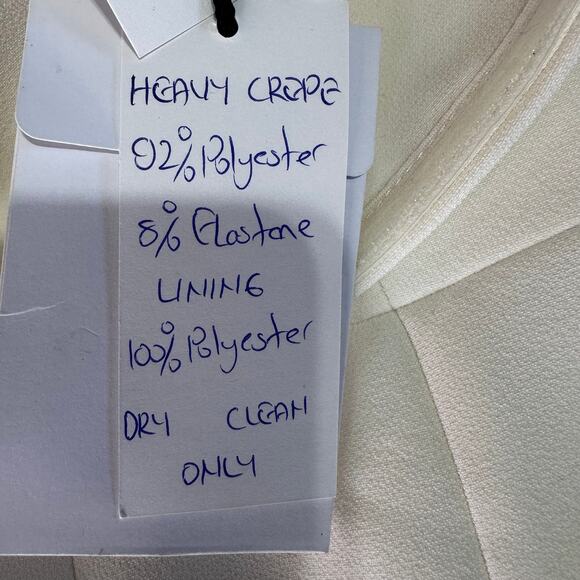 HEAVY CREPE
92% Polyester
8% Elastane
LINING
100% Polyester
DRY CLEAN
ONLY